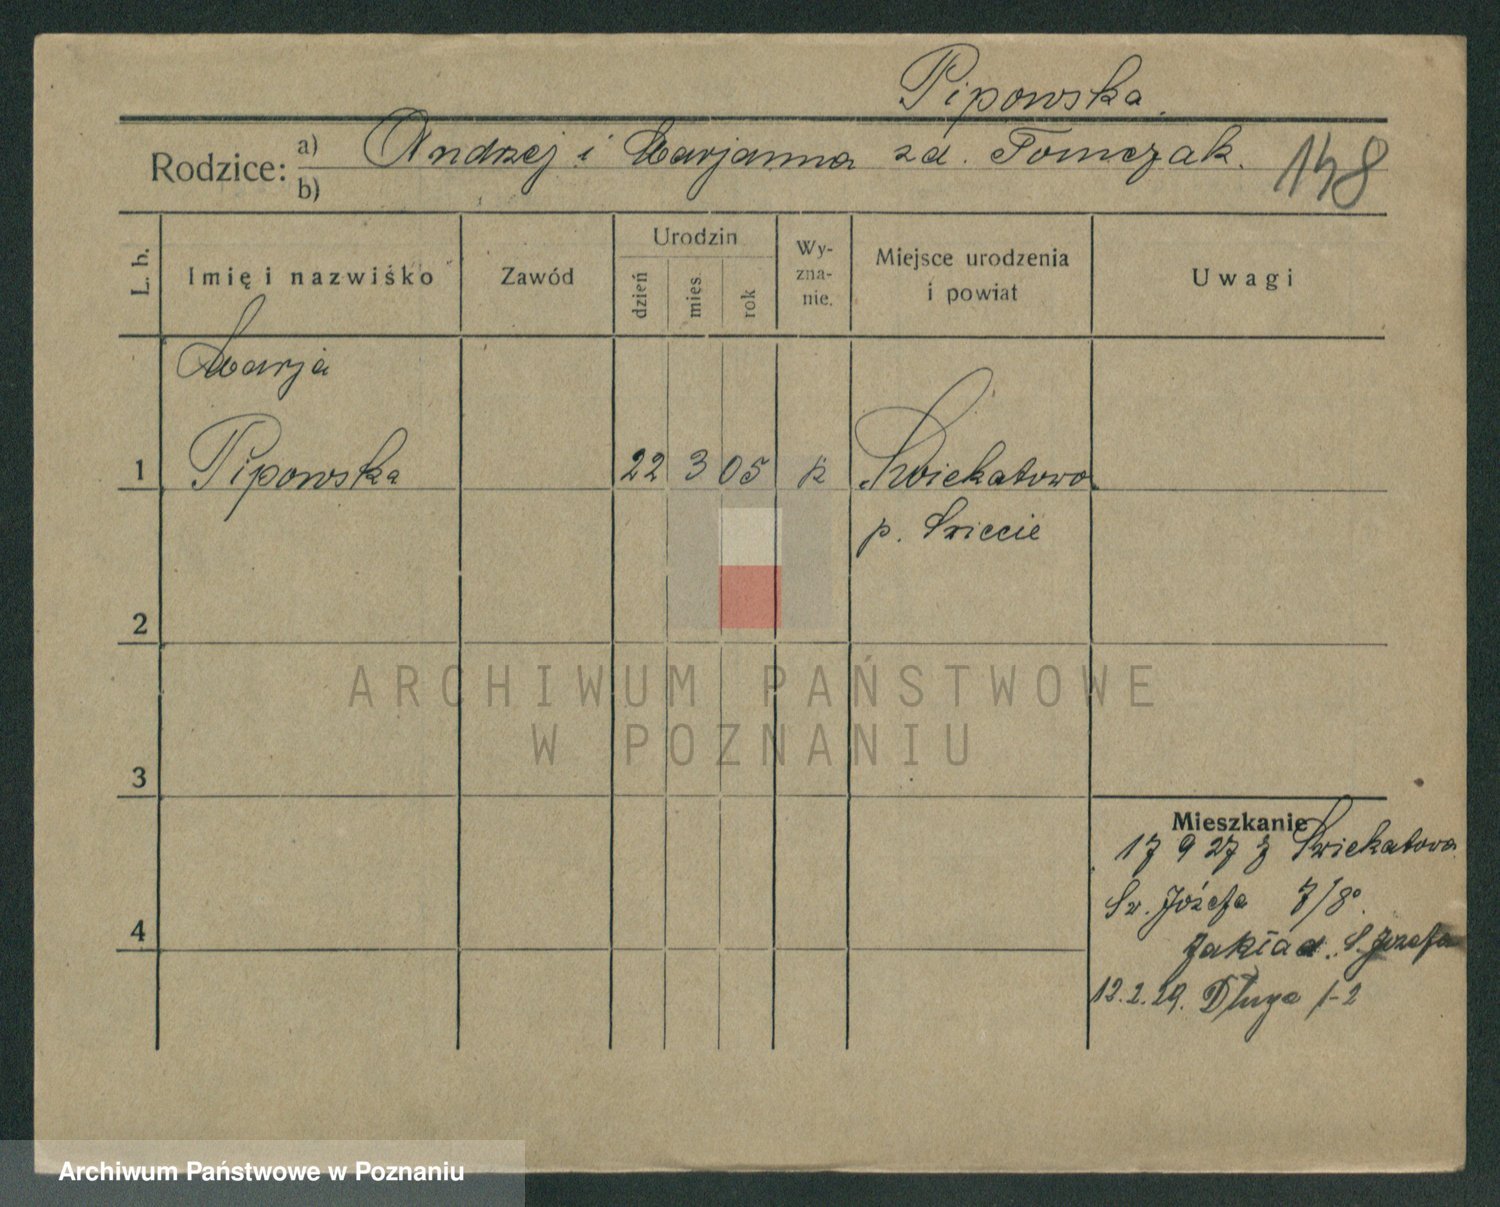 Pipowska
Rodzice: a) Andrzej i Marjanna zd. Tomczak. 148
b)
L. b. Imię i nazwisko Zawód Urodzin dzień mies. rok Wy-zna-nie. Miejsce urodzenia i powiat Uwagi
Marja
1 Pipowska 22 3 05 k Świekatowo
p. Świecie
2
ARCHIWUM PAŃSTWOWE
W POZNANIU
3
Mieszkanie
17 9 27 z Świekatowa
Św. Józefa 7/8.
4 Zakład. S. Józefa
12.2.29. Długa 1-2
Archiwum Państwowe w Poznaniu